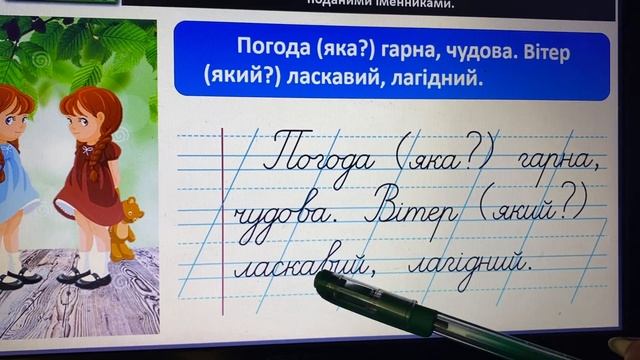 поданими іменниками.
Погода (яка?) гарна, чудова. Вітер
(який?) ласкавий, лагідний.
Погода (яка?) гарна,
чудова. Вітер (який?)
ласкавий, лагідний.